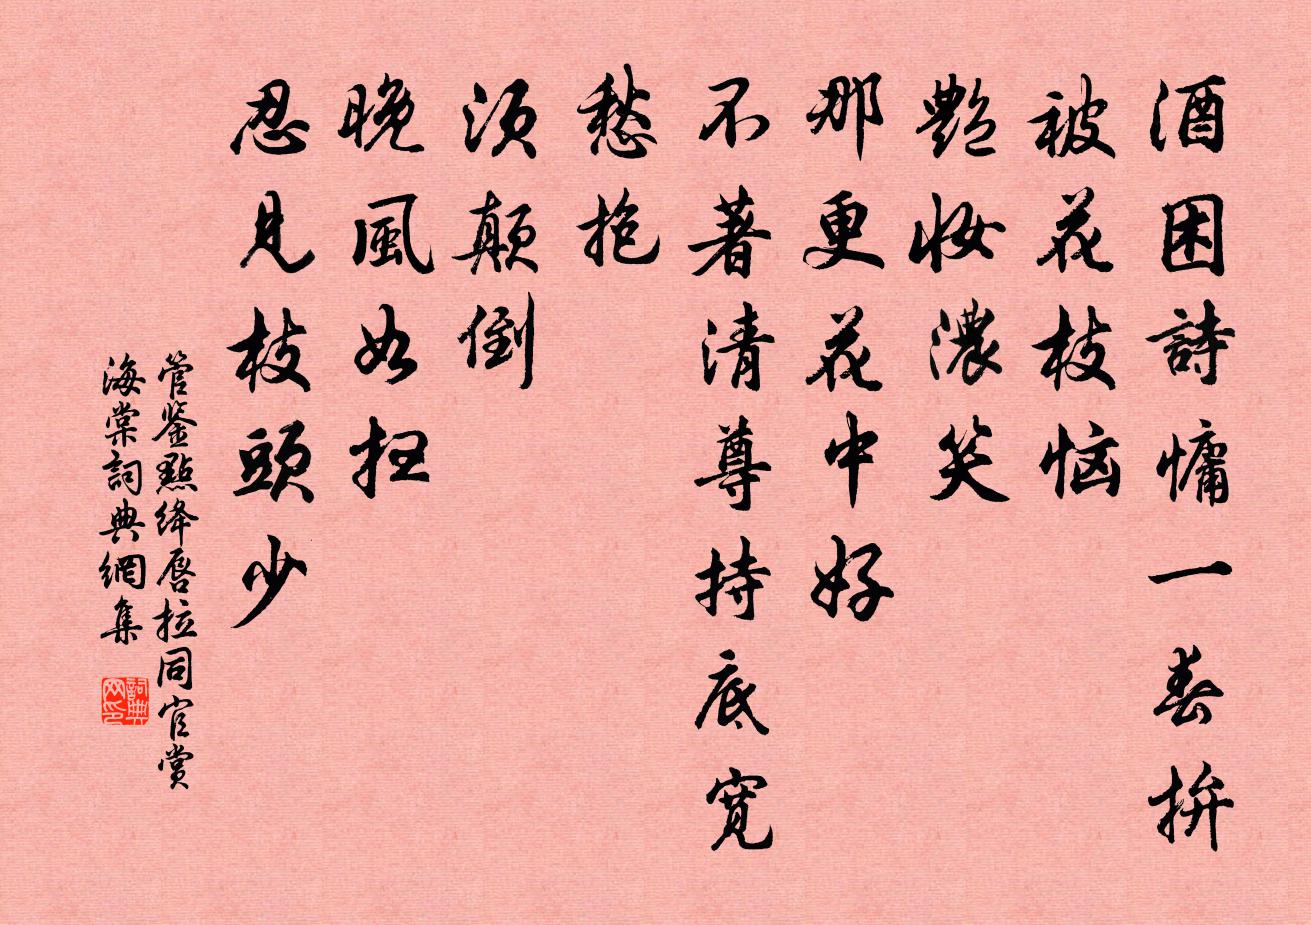 酒困詩慵一春拚
被花枝惱
艷妝濃笑
那更花中好
不著清尊持底寬
愁抱
須顛倒
晚風如掃
忍見枝頭少
管鑒點絳唇拉同官賞
海棠詞典網集
詞典
网印